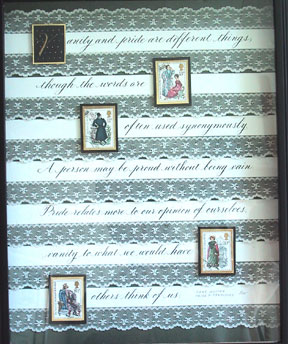 Vanity and pride are different things,
though the words are
often used synonymously.
A person may be proud without being vain.
Pride relates more to our opinion of ourselves,
vanity to what we would have
others think of us.